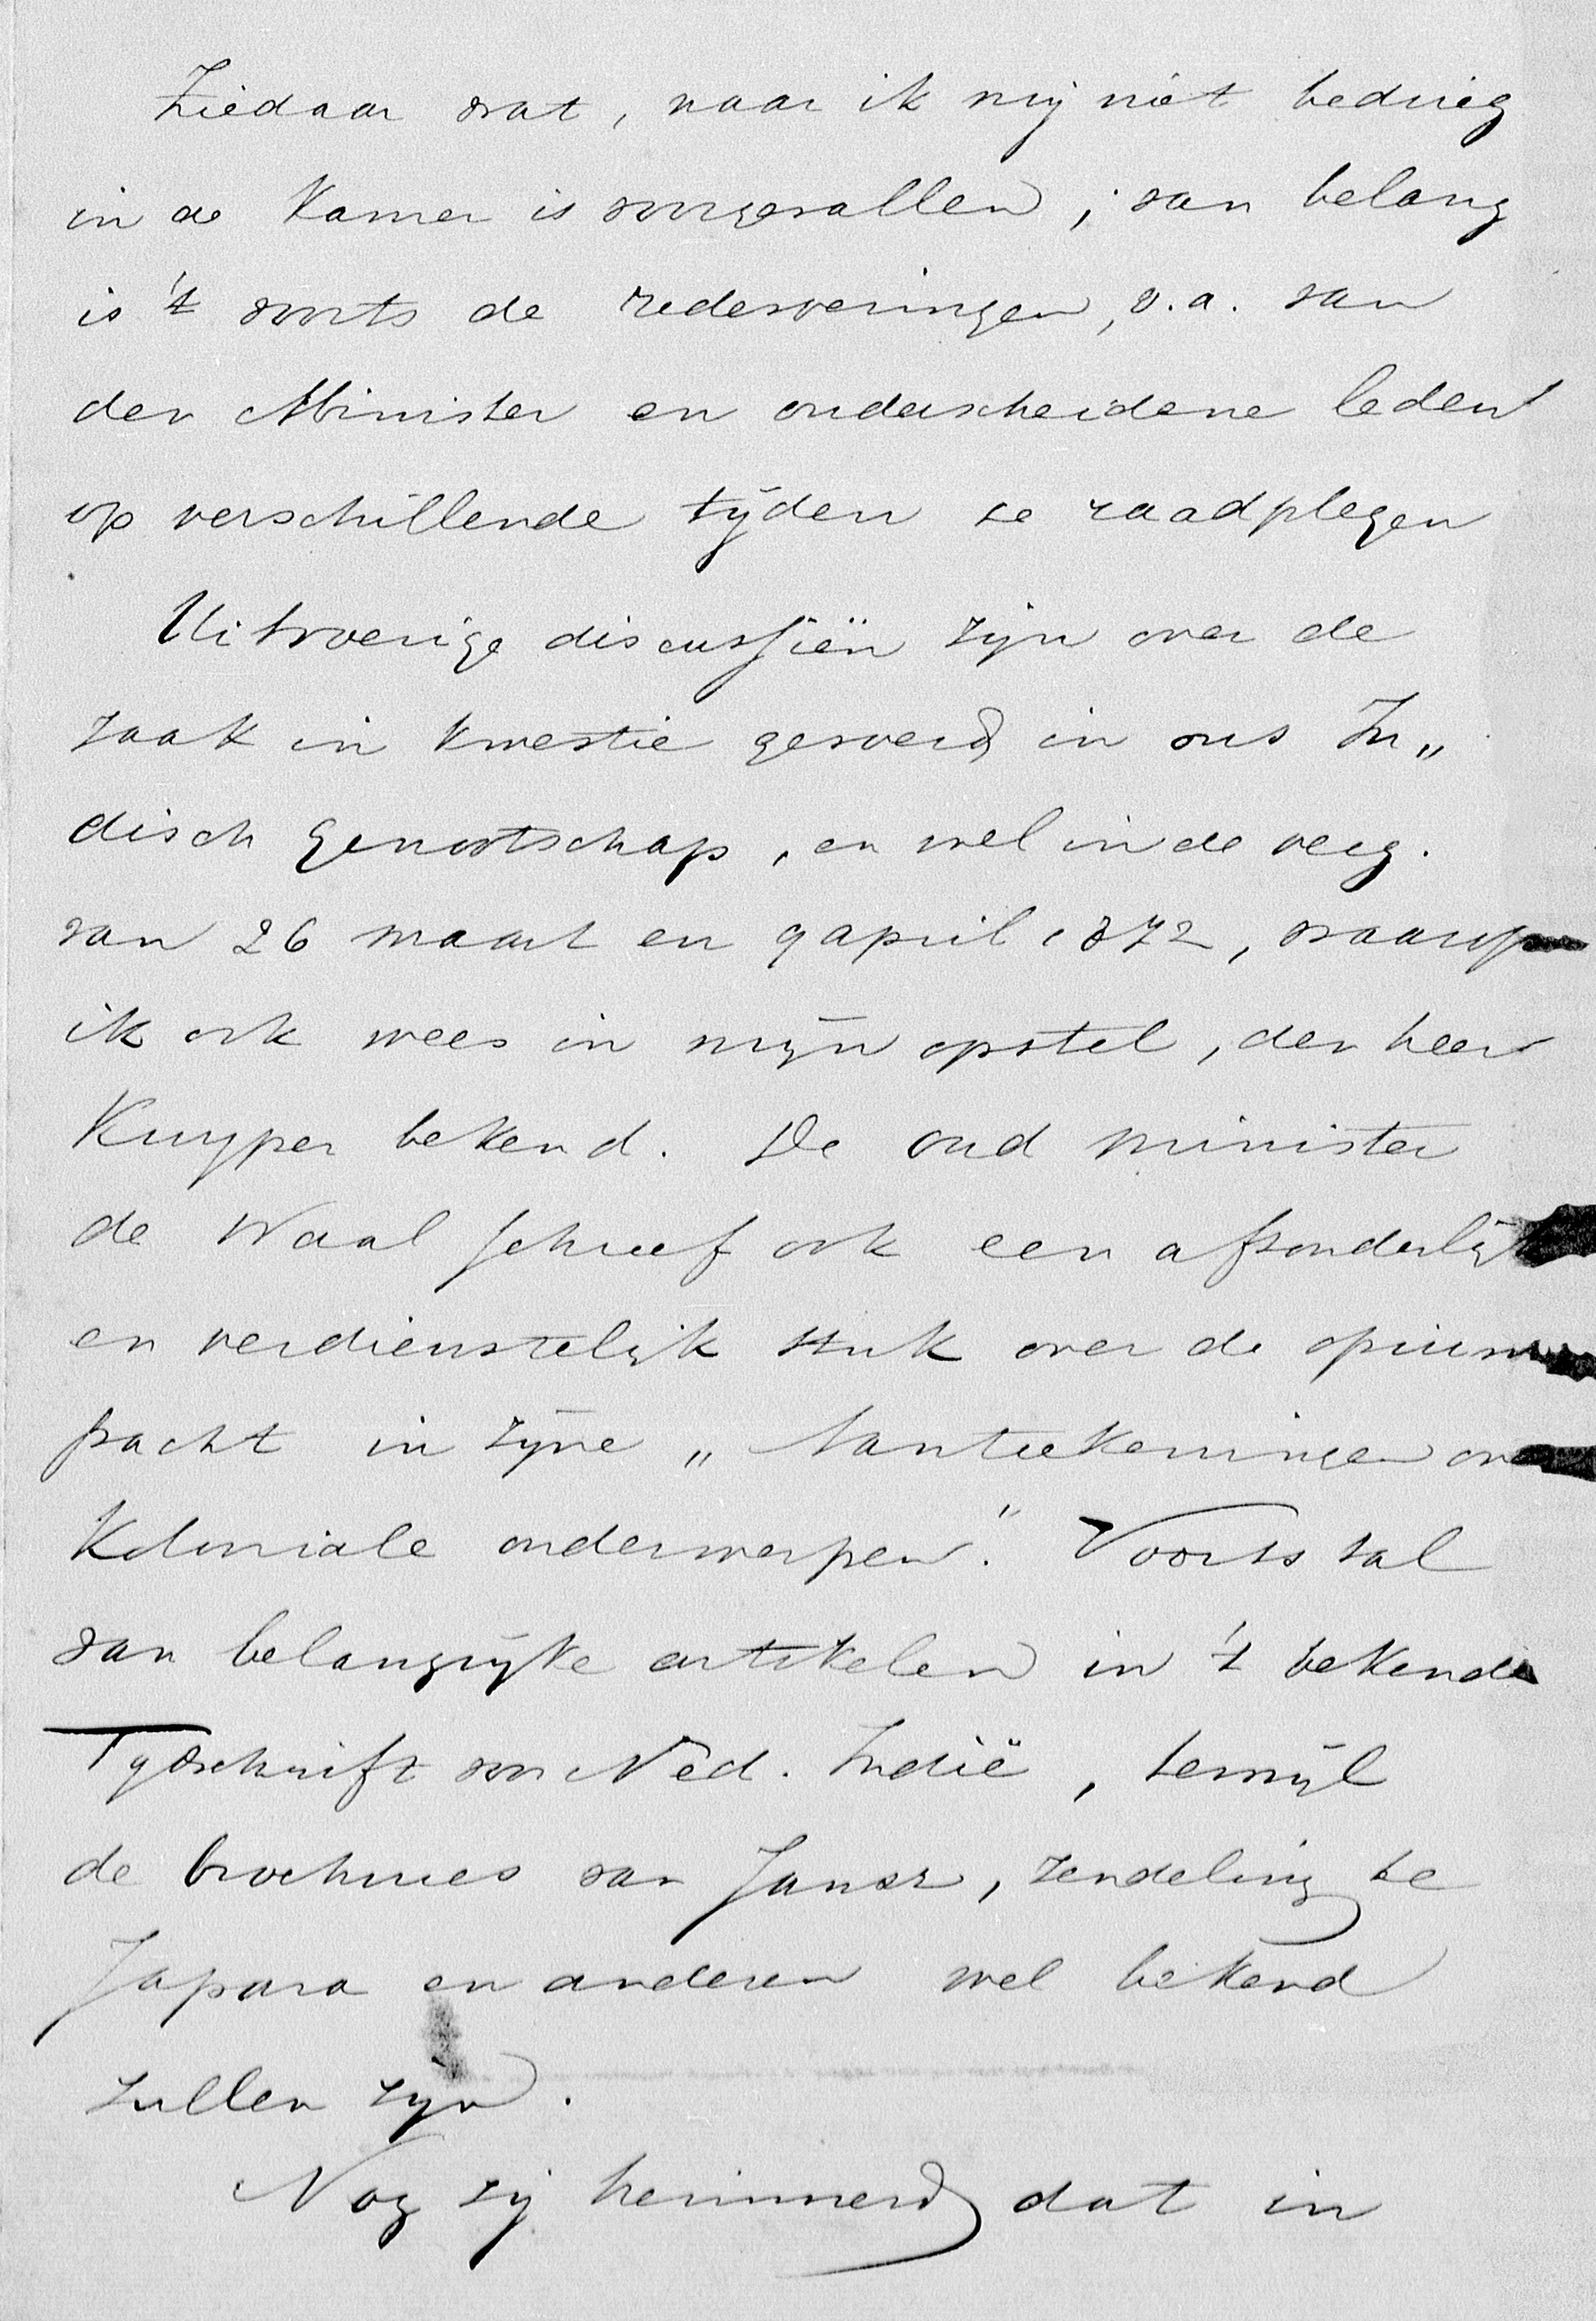 Ziedaar wat, naar ik mij niet bedrieg
in de Kamer is voorgevallen; van belang
is 't voorts de redevoeringen, o.a. van
den Minister en onderscheidene leden
op verschillende tijden te raadplegen
Uitvoerige discussiën zijn over de
zaak in kwestie gevoerd in ons In„
disch Genootschap, en wel in de verg.
van 26 maart en 9 april 1872, waarop
ik ook wees in mijn opstel, den heer
Kuyper bekend. De oud minister
de Waal schreef ook een afzonderlijk
en verdienstelijk stuk over de opium
pacht in zijne „Aanteekeningen over
Koloniale onderwerpen". Voorts tal
van belangrijke artikelen in 't bekende
Tijdschrift voor Ned. Indië, terwijl
de brochures van Jansz, zendeling te
Japara en anderen wel bekend
zullen zijn.
Nog zij herinnerd dat in